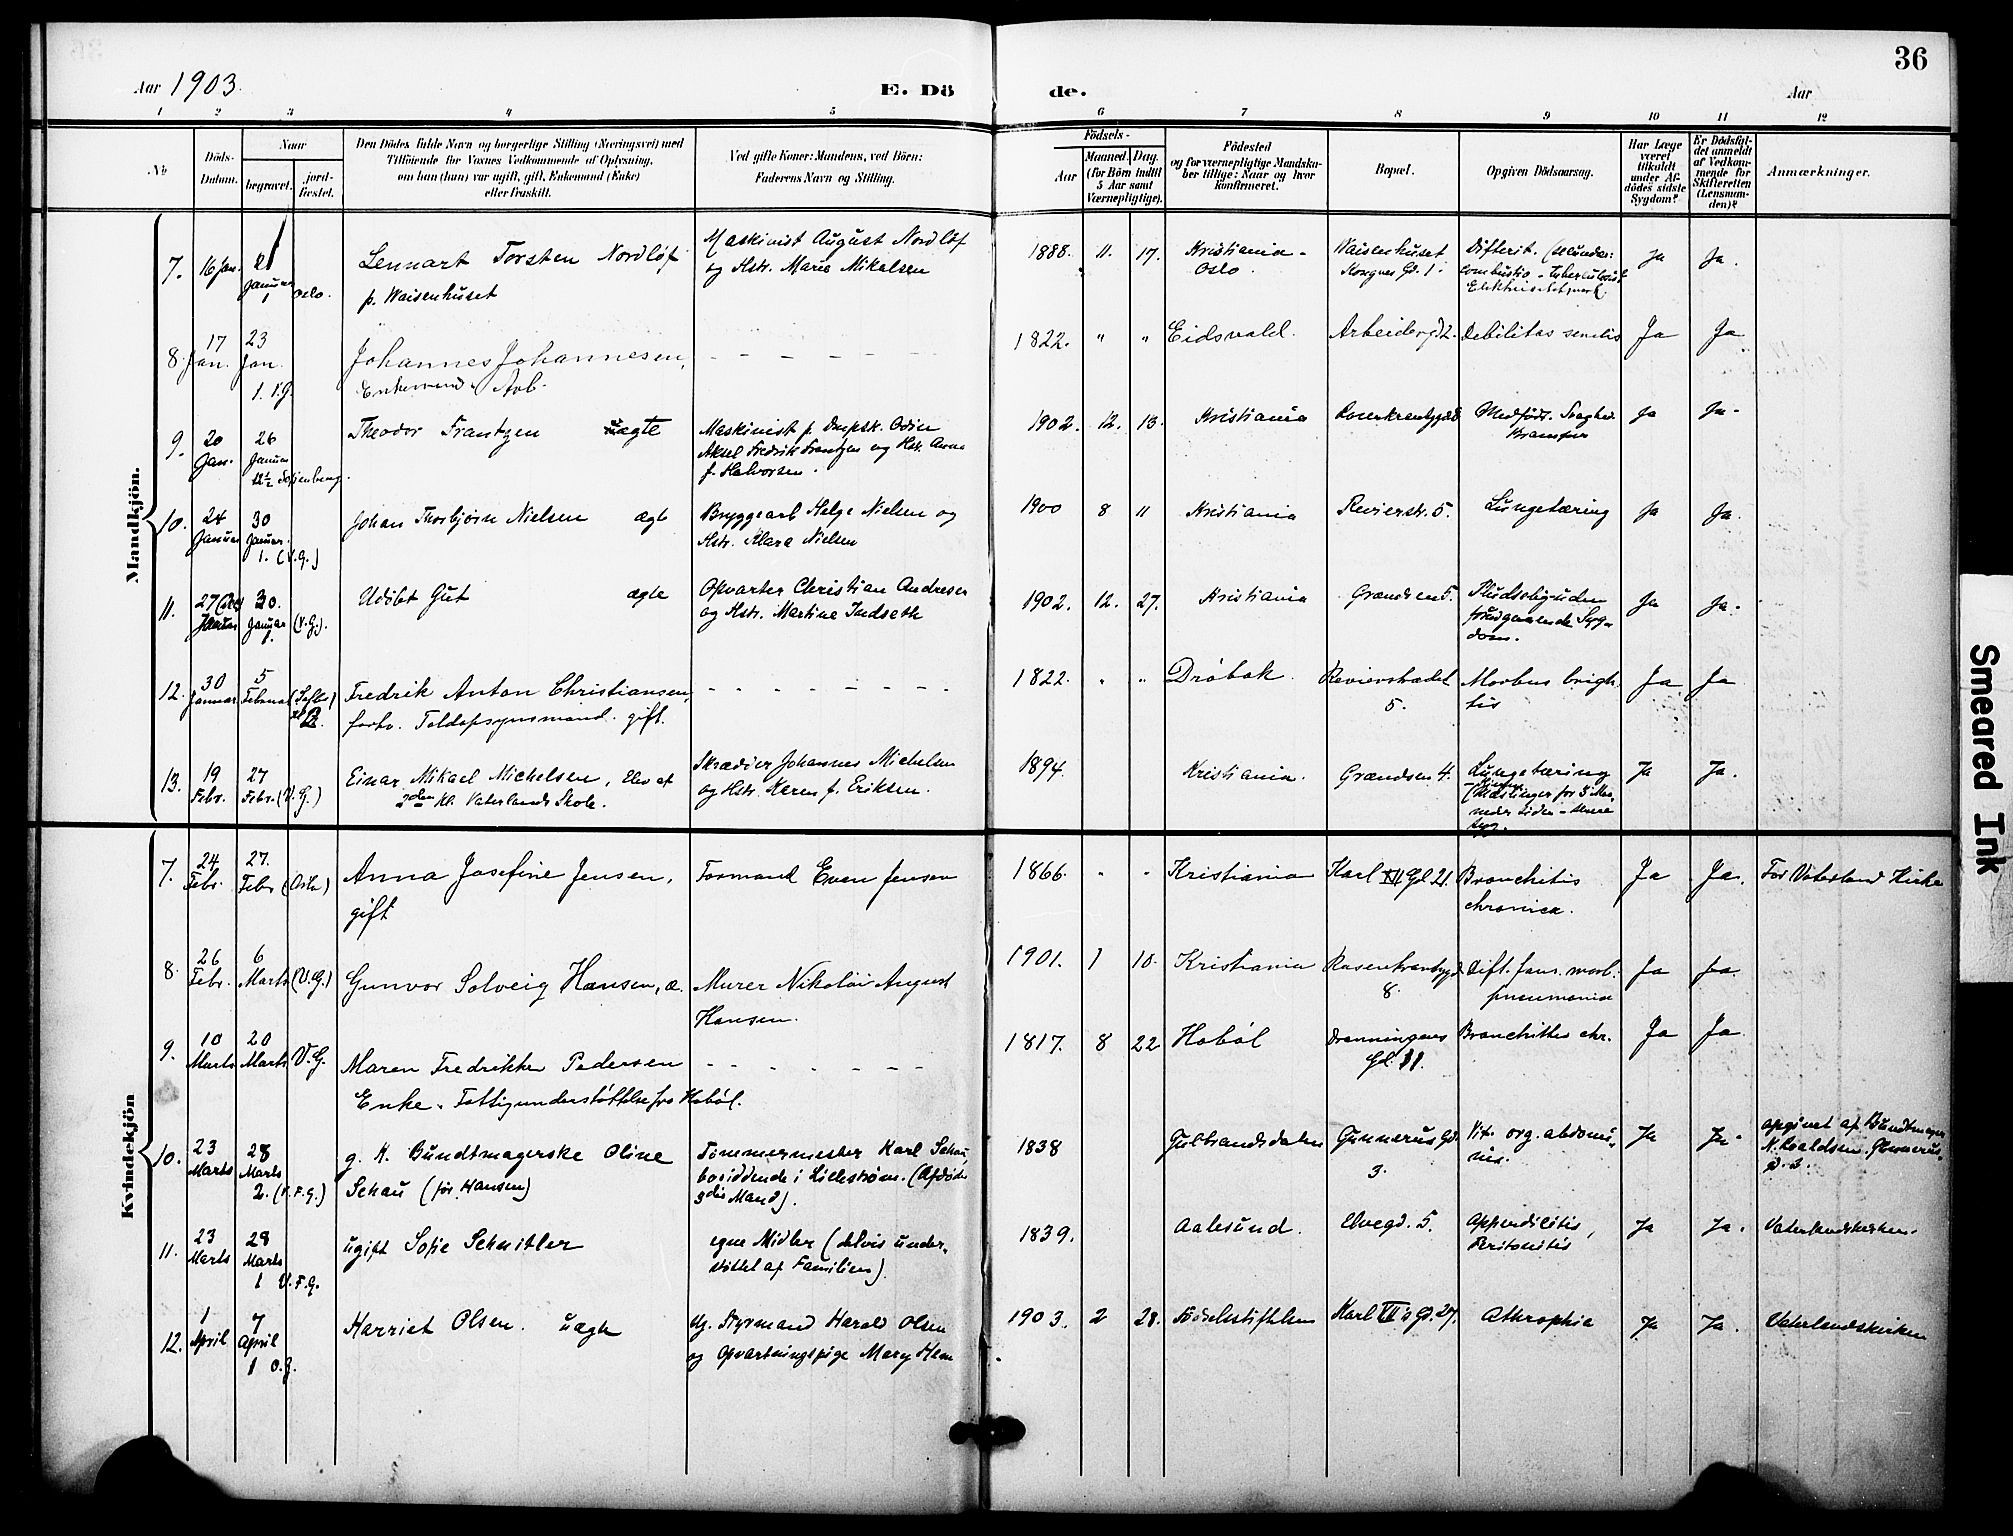 36
Aar 1903.
E. Dö de.
Aar
1 2 3 4 5 6 7 8 9 10 11 12
No
Döds-
Datum.
Naar
begravet.
jord-
fæstet.
Den Dödes fulde Navn og borgerlige Stilling (Næringsvei) med
Tilföiende for Voxnes Vedkommende af Oplysning,
om han (hun) var ugift, gift, Enkemand (Enke)
eller fraskilt.
Ved gifte Koner: Mandens, ved Börn:
Faderens Navn og Stilling.
Födsels-
Aar
Maaned. Dag.
(for Börn indtil
5 Aar samt
Værnepligtige).
Födested
og for værnepligtige Mandska-
ber tillige: Naar og hvor
konfirmeret.
Bopæl.
Opgiven Dödsaarsag.
Har Læge
været
tilkaldt
under Af-
dödes sidste
Sygdom?
Er Dödsfal-
det anmeldt
af Vedkom-
mende for
Skifteretten
(Lensman-
den)?
Anmærkninger.
Mandkjön.
7. 16 Jan. 21 Januar 1 Oslo.
Lennart Torsten Nordløf
p. Waisenhuset
Maskinist August Nordløf
og Hstr. Marie Mikalsen
1888. 11. 17. Kristiania -
Oslo.
Waisenhuset
Kongens Gd. 1.
Difterit.
Ja Ja.
8. 17 Jan. 23 Jan. 1. V.G.
Johannes Johannesen,
Enkemand. Arb.
1822. " " Eidsvold. Arbeidergd 2. Debilitas senilis Ja Ja
9. 20 Jan. 26 Januar 12½ Sofienberg.
Theodor Frantzen uægte
Maskinist p. Dmpsk. Odin
Aksel Fredrik Frantzen og Hst. Anna
f. Halvorsen.
1902. 12. 13. Kristiania Rosenkrantzgd 8 Medfødt Svaghed
Ja Ja.
10. 24 Januar 30 Januar. 1. (V.G.)
Johan Thorbjørn Nielsen ægte
Bryggearb Helge Nielsen og
Hstr. Klara Nielsen
1900 8 11 Kristiania Revierstr. 5. Lungetæring Ja Ja.
11. 27 Januar 30. Januar 1. (V.G.).
Udøbt Gut ægte
Opvarter Christian Andresen
og Hstr. Martine Indseth
1902. 12. 27. Kristiania Grændsen 5. Pludselig uden
forudgaaende Syg-
dom.
Ja Ja.
12. 30 Januar 5 Februar
Fredrik Anton Christiansen,
forhv. Toldopsynsmand. gift.
1822. " " Drøbak. Revierstrædet
5.
Morbus brigh
tis
Ja Ja
13. 19 Febr. 27 Febr. (V.G.)
Einar Mikael Michelsen, Elev af
3den Kl. Vaterlands Skole.
Skrædder Johannes Michelsen
og Hstr. Karen f. Eriksen.
1894. Kristiania. Grændsen 4. Lungetæring
(Mæslinger for 3 Maa-
neder siden - senere
syg.
Ja Ja.
Kvindekjön
7. 24 Febr. 27. Febr (Oslo)
Anna Josefine Jensen,
gift
Formand Even Jensen
1866. " " Kristiania Karl XII Gd 21. Bronchitis
chronica.
Ja Ja. For Vaterland Kirke
8. 26 Febr. 6 Marts (V.G.)
Gunvor Solveig Hansen, æ.
Murer Nikolai August
Hansen.
1901. 1 10. Kristiania Rosenkrantzgd.
8.
Dift. fauc. morb.
pneumonia
Ja Ja.
9. 10 Marts 20 Marts V.G.
Maren Fredrikke Pedersen
Enke. Fattigunderstøttelse fra Hobøl.
1817. 8 22 Hobøl Dronningens
Gd. 11.
Bronchitis chr. Ja Ja
10. 23 Marts 28 Marts 2. (V.F.G.)
g. K. Bundtmagerske Oline
Schau (før Hansen)
Tømmermester Karl Schau
bosiddende i Lillestrøm. (Afdøde
3die Mand).
1838 Gulbrandsdalen Gunnerus Gd.
3.
Vit. org. abdomi-
nis.
Ja Ja opgivet af Bundtmager
11. 23 Marts 28 Marts 1 V.F.G.
ugift Sofie Schnitler
egne Midler (delvis under-
støttet af Familien).
1839. Aalesund. Elvegd. 5. Appendicitis,
Peritonitis
Ja Ja. Vaterlandskirken.
12. 1 April 7 April 1 O.G.
Harriet Olsen. uægte
Ug. Styrmand Harald Olsen
og Opvartningspige Mary Hem
1903. 2 28. Fødselsstiftelsen Karl XII's Gd. 27. Athrophia Ja Ja. Vaterlandskirken
Smeared Ink